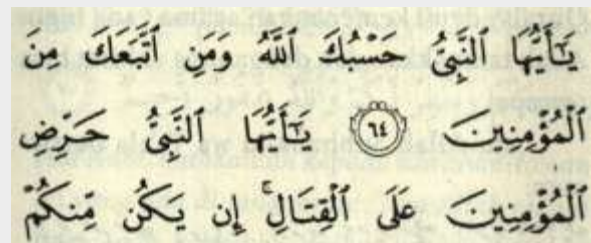 يَٰٓأَيُّهَا ٱلنَّبِىُّ حَسْبُكَ ٱللَّهُ وَمَنِ ٱتَّبَعَكَ مِنَ
ٱلْمُؤْمِنِينَ ٦٤ يَٰٓأَيُّهَا ٱلنَّبِىُّ حَرِّضِ
ٱلْمُؤْمِنِينَ عَلَى ٱلْقِتَالِ ۚ إِن يَكُن مِّنكُمْ